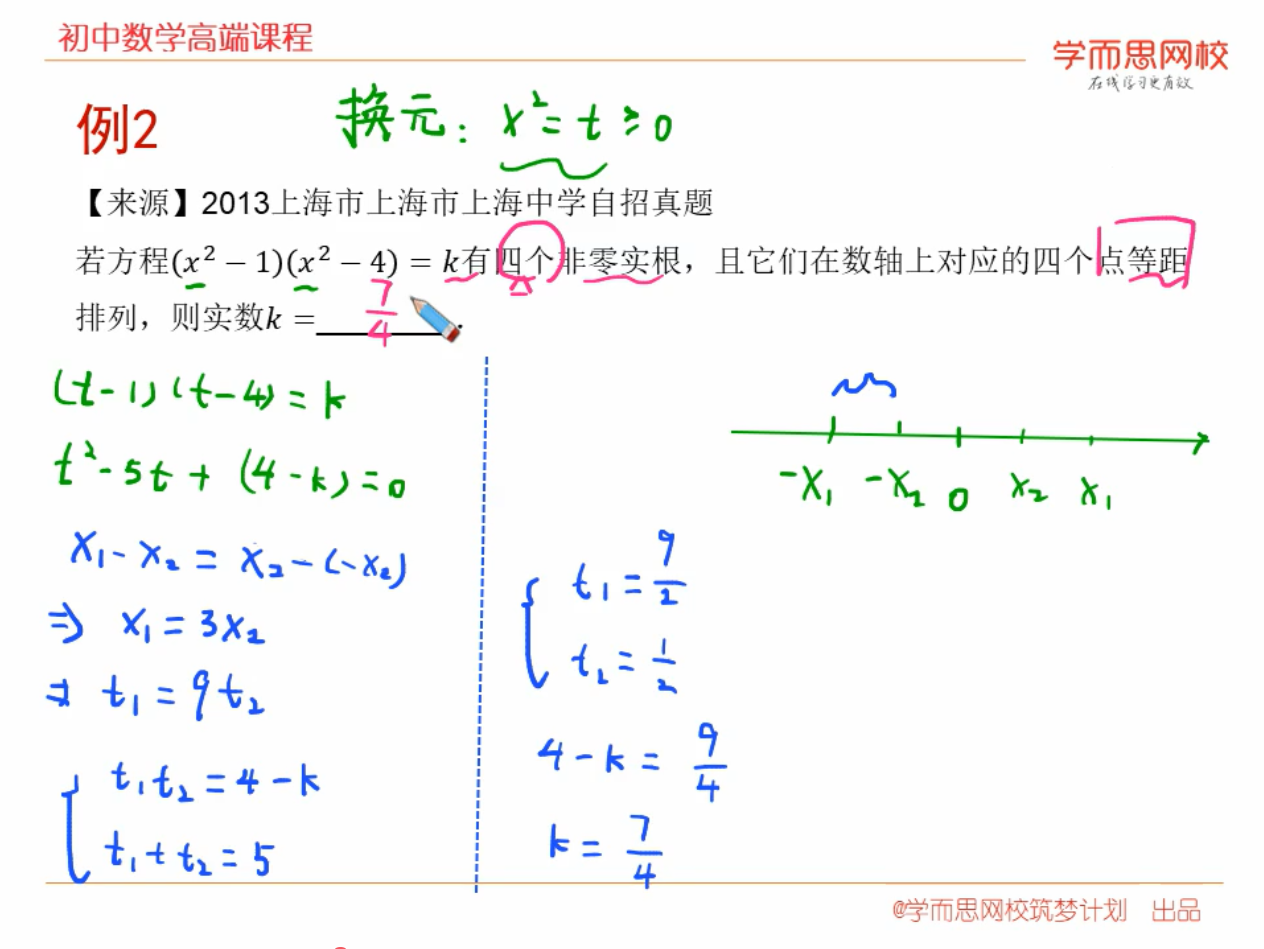 初中数学高端课程
学而思网校
在线学习更有效
例2
换元: x²=t≥0
【来源】2013上海市上海市上海中学自招真题
若方程(x² − 1)(x² − 4) = k有四个非零实根，且它们在数轴上对应的四个点等距
排列，则实数k = 7/4 .
(t-1)(t-4)=k
t²-5t+(4-k)=0
x₁-x₂=x₂-(-x₂)
⇒ x₁=3x₂
⇒ t₁=9t₂
{ t₁t₂=4-k
t₁+t₂=5
-x₁ -x₂ 0 x₂ x₁
{ t₁=9/2
t₂=1/2
4-k=9/4
k=7/4
@学而思网校筑梦计划 出品